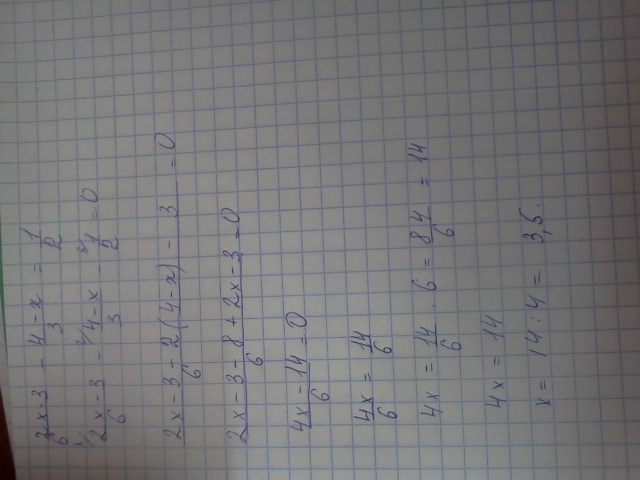 (2x-3)/6 - (4-x)/3 = 1/2
¹⁾(2x-3)/6 - ²⁾(4-x)/3 - ³⁾1/2 = 0
(2x-3-2(4-x)-3)/6 = 0
(2x-3-8+2x-3)/6 = 0
(4x-14)/6 = 0
4x/6 = 14/6
4x = 14/6 · 6 = 84/6 = 14
4x = 14
x = 14 : 4 = 3,5.